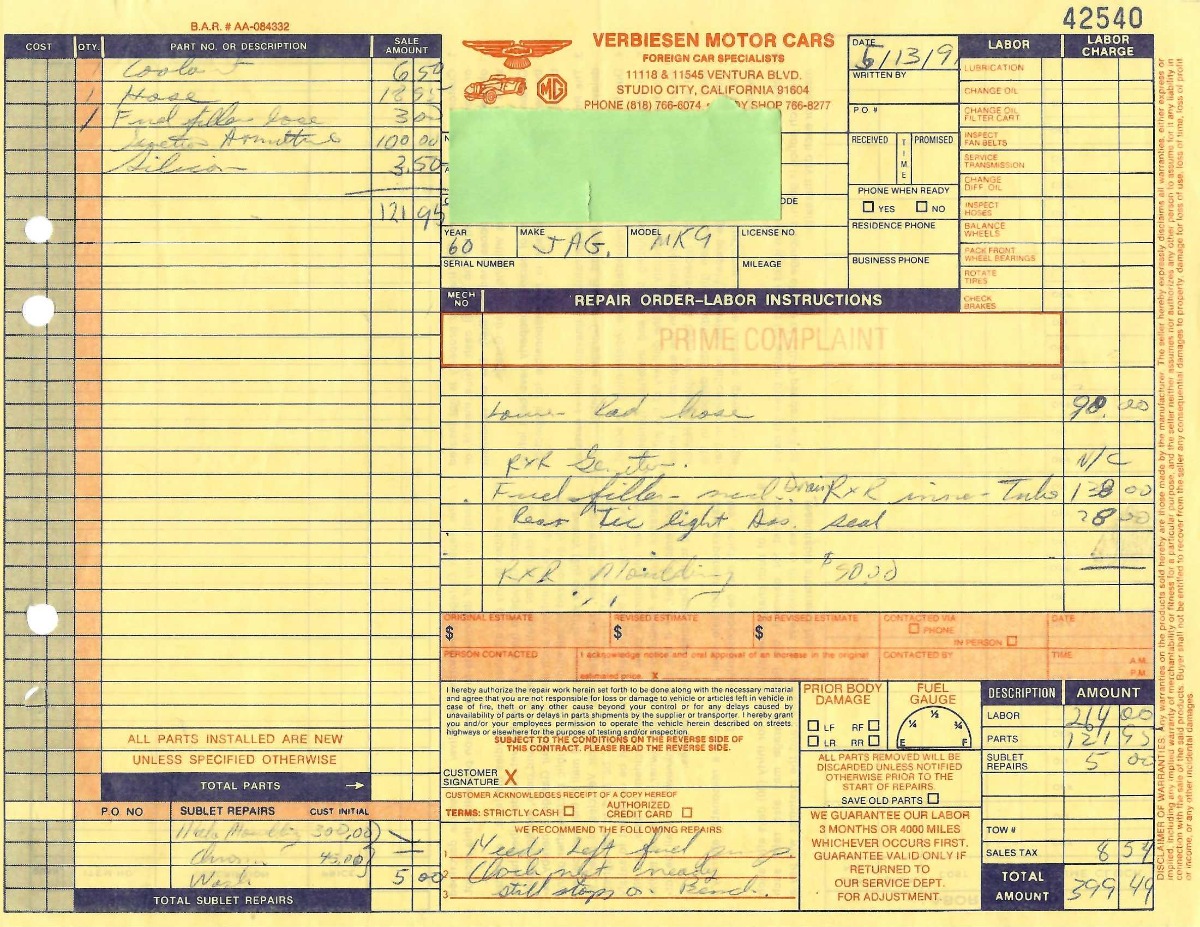 42540
B.A.R. # AA-084332
COST QTY. PART NO. OR DESCRIPTION SALE AMOUNT
Coolant 6 50
1 Hose 18 95
1 Fuel filler hose
100 00
Silicon 3.50
121 95
VERBIESEN MOTOR CARS
FOREIGN CAR SPECIALISTS
11118 & 11545 VENTURA BLVD.
STUDIO CITY, CALIFORNIA 91604
PHONE (818) 766-6074 DY SHOP 766-8277
MG
DATE 6/13/9
WRITTEN BY
P.O #
RECEIVED TIME PROMISED
PHONE WHEN READY
YES NO
RESIDENCE PHONE
BUSINESS PHONE
YEAR 60 MAKE JAG. MODEL MK9 LICENSE NO.
SERIAL NUMBER MILEAGE
LABOR LABOR CHARGE
LUBRICATION
CHANGE OIL
CHANGE OIL FILTER CART
INSPECT FAN BELTS
SERVICE TRANSMISSION
CHANGE DIFF. OIL
INSPECT HOSES
BALANCE WHEELS
PACK FRONT WHEEL BEARINGS
ROTATE TIRES
CHECK BRAKES
MECH NO REPAIR ORDER–LABOR INSTRUCTIONS
PRIME COMPLAINT
Lower Rad hose 98.00
RxR N/C
Fuel filler Drain RxR inner Tube 138 00
Rear light Ass. seal 28 00
RxR Moulding $50.00
ORIGINAL ESTIMATE $ REVISED ESTIMATE $ 2nd REVISED ESTIMATE $ CONTACTED VIA PHONE IN PERSON DATE
PERSON CONTACTED I acknowledge notice and oral approval of an increase in the original estimated price. X CONTACTED BY TIME A.M. P.M.
I hereby authorize the repair work herein set forth to be done along with the necessary material
and agree that you are not responsible for loss or damage to vehicle or articles left in vehicle in
case of fire, theft or any other cause beyond your control or for any delays caused by
unavailability of parts or delays in parts shipments by the supplier or transporter. I hereby grant
you and/or your employees permission to operate the vehicle herein described on streets,
highways or elsewhere for the purpose of testing and/or inspection.
SUBJECT TO THE CONDITIONS ON THE REVERSE SIDE OF
THIS CONTRACT. PLEASE READ THE REVERSE SIDE.
CUSTOMER SIGNATURE X
CUSTOMER ACKNOWLEDGES RECEIPT OF A COPY HEREOF
TERMS: STRICTLY CASH AUTHORIZED CREDIT CARD
WE RECOMMEND THE FOLLOWING REPAIRS
1 Needs Left fuel pump
2 Clock not ready
3 still stops on Bench.
PRIOR BODY DAMAGE
LF RF
LR RR
FUEL GAUGE
E ¼ ½ ¾ F
ALL PARTS REMOVED WILL BE
DISCARDED UNLESS NOTIFIED
OTHERWISE PRIOR TO THE
START OF REPAIRS.
SAVE OLD PARTS
WE GUARANTEE OUR LABOR
3 MONTHS OR 4000 MILES
WHICHEVER OCCURS FIRST.
GUARANTEE VALID ONLY IF
RETURNED TO
OUR SERVICE DEPT.
FOR ADJUSTMENT.
DESCRIPTION AMOUNT
LABOR 264 00
PARTS 121 95
SUBLET REPAIRS 5 00
TOW #
SALES TAX 8 54
TOTAL AMOUNT 399 49
ALL PARTS INSTALLED ARE NEW
UNLESS SPECIFIED OTHERWISE
TOTAL PARTS →
P.O. NO SUBLET REPAIRS CUST INITIAL
300,00
Chrom 45.00
Wash 5 00
TOTAL SUBLET REPAIRS
DISCLAIMER OF WARRANTIES. Any warranties on the products sold hereby are those made by the manufacturer. The seller hereby expressly disclaims all warranties, either express or
implied, including any implied warranty of merchantability or fitness for a particular purpose, and the seller neither assumes nor authorizes any other person to assume for it any liability in
connection with the sale of the said products. Buyer shall not be entitled to recover from the seller any consequential damages to property, damage for loss of use, loss of time, loss of profit
or income, or any other incidental damages.